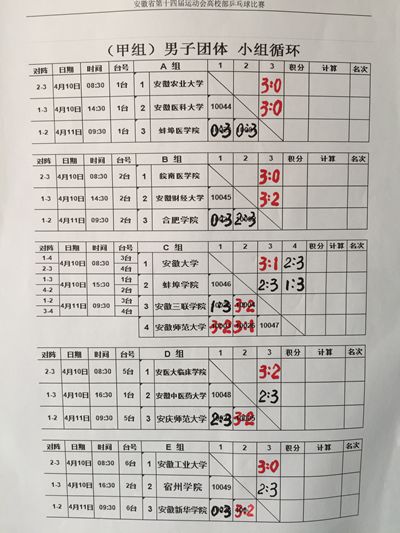 安徽省第十四届运动会高校部乒乓球比赛
（甲组）男子团体 小组循环
对阵 日期 时间 台号 A 组 1 2 3 积分 计算 名次
2-3 4月10日 08:30 1台 1 安徽农业大学 3:0
1-3 4月10日 14:30 1台 2 安徽医科大学 10044 3:0
1-2 4月11日 09:30 1台 3 蚌埠医学院 0:3 0:3
对阵 日期 时间 台号 B 组 1 2 3 积分 计算 名次
2-3 4月10日 08:30 2台 1 皖南医学院 3:0
1-3 4月10日 14:30 2台 2 安徽财经大学 10045 3:2
1-2 4月11日 09:30 2台 3 合肥学院 0:3 2:3
对阵 日期 时间 台号 C 组 1 2 3 4 积分 计算 名次
1-4 4月10日 08:30 3台 1 安徽大学 3:1 2:3
2-3 4台
1-3 4月10日 15:30 1台 2 蚌埠学院 10046 2:3 1:3
4-2 2台
1-2 4月11日 09:30 3台 3 安徽三联学院 1:3 3:2
3-4 4台
4 安徽师范大学 3:2 3:1 10047
对阵 日期 时间 台号 D 组 1 2 3 积分 计算 名次
2-3 4月10日 08:30 5台 1 安医大临床学院 3:2
1-3 4月10日 16:30 1台 2 安徽中医药大学 10048 2:3
1-2 4月11日 09:30 5台 3 安庆师范大学 2:3 3:2
对阵 日期 时间 台号 E 组 1 2 3 积分 计算 名次
2-3 4月10日 08:30 6台 1 安徽工业大学 3:0
1-3 4月10日 16:30 2台 2 宿州学院 10049 2:3
1-2 4月11日 09:30 6台 3 安徽新华学院 0:3 3:2